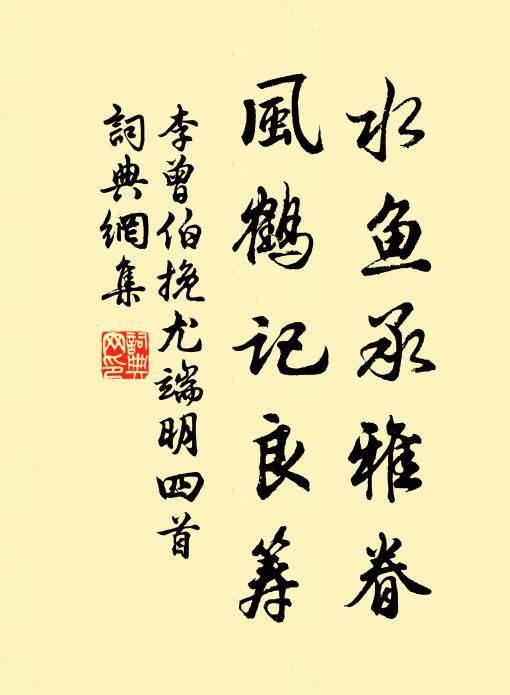 水鱼承雅眷
風鶴记良筹
李曾伯挽尤端明四首
詞典網集
詞典网印